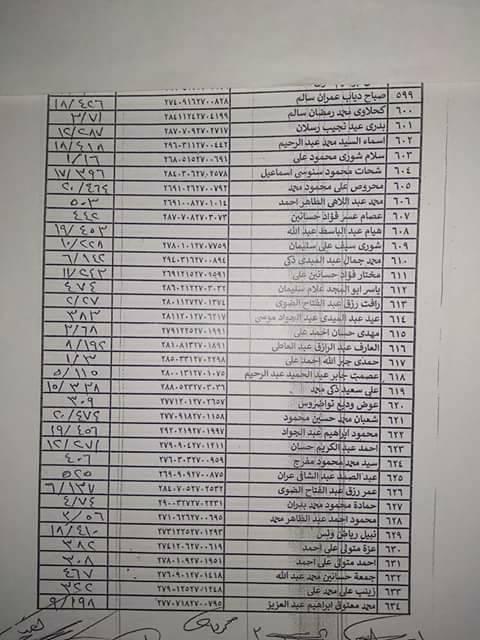 ٥٩٩ صباح دياب عمران سالم ٢٧٤٠٩١٦٢٧٠٠٨٢٨ ١٨/٤٢٦
٦٠٠ كحلاوى محمد رمضان سالم ٢٨٤١١٢٤٢٧٠٤١٩٩ ٣/٧١
٦٠١ بدرى عيد نجيب رسلان ٢٨٧٠٧٠٩٢٧٠٢٧١٧ ١٢/٢٨٧
٦٠٢ اسماء السيد محمد عبد الرحيم ٢٩٦٠٣١١٢٧٠٠٤٤٢ ١٨/٤١٨
٦٠٣ سلام شورى محمود على ٢٦٨٠٥١٥٢٧٠٠٦٩١ ١/١٦
٦٠٤ شحات محمود سنوسى اسماعيل ٢٨٤٠٣٠٦٢٧٠٢٥٧٨ ١٧/٣٩٦
٦٠٥ محروص على محمود محمد ٢٦٩١٠٢٦٢٧٠٠٧٩٢ ٢٠/٤٦٤
٦٠٦ محمد عبد اللاهى الظاهر احمد ٢٦٩١٠٠٨٢٧٠١٠١٤ ٥٠٣
٦٠٧ عصام عسر فؤاد حسانين ٢٨٧٠٧٠٨٢٧٠٣٠٧٣ ٤٤٢
٦٠٨ هيام عبد الباسط عبد الله ١٩/٤٥٣
٦٠٩ شورى سيف على سليمان ٢٧٨٠١٠١٢٧٠٧٧٥٩ ١٠/٢٢٨
٦١٠ محمد جمال عبد المبدى ذكى ٢٩٤٠٣١٦٢٧٠٠٨٩٤ ٦/١٤٢
٦١١ مختار فؤاد حسانين على ٢٦٩١٢١٥٢٧٠٠٥٩١
٦١٢ ياسر ابو المجد علام سليمان ٢٨٦٠٢١٢٢٧٠٣٠٣٢ ٤٧٤
٦١٣ رافت رزق عبد الفتاح الضوى ٢٨٠١١٢٧٢٧٠١٣٧٤ ٢/٢٧
٦١٤ عيد عبد المبدى عبد الجواد موسى ٢٨١١٢٠١٢٧٠٦٢١٧ ٣٨٣
٦١٥ مهدى حسان احمد على ٢٧٩١٢٢٥٢٧٠١٩٩١ ٢/٦٨
٦١٦ العارف عبد الرازق عبد العاطى ٢٨١٠٨١٣٢٧٠١٨٩١ ٨/١٩٢
٦١٧ حمدى جبر الله احمد على ٢٨٥٠٣٣١٢٧٠٢٢٩٨ ١/٣
٦١٨ عصمت جابر عبد الحميد عبد الرحيم ٢٨٠٠١٣١٢٧٠١٠٧٥ ٥/١١٥
٦١٩ على سعيد ذكى محمد ٢٨٨٠٥٢٣٢٧٠٣٠٣٦ ١٥/٣٢٨
٦٢٠ عوض وديع تواضروس ٢٧٧١٢٠١٢٧٠٢٦٥٧ ٣٠٩
٦٢١ شعبان محمد حسين محمود ٢٧٧٠٩١٨٢٧٠١١٥٨ ٢٠/٤٧٤
٦٢٢ محمود ابراهيم عبد الجواد ٢٩٢٠٢١٩٢٧٠١٩٩٧ ١٩/٤٥٦
٦٢٣ احمد عبد الكريم حسان ٢٧٩٠٩٠٤٢٧٠١٢١١ ١٢/٢٧١
٦٢٤ سيد محمد محمود مفرح ٢٧٦٠٣٠٣٢٧٠٠٩٥٩ ٤٠٦
٦٢٥ عبد الصمد عبد الشافى عران ٢٦٩٠٩٠٩٢٧٠٠٨٧٥ ٥٢٥
٦٢٦ عمر رزق عبد الفتاح الضوى ٢٨٤٠٧٠٥٢٧٠٢٥٣٢ ٦/١٣٧
٦٢٧ حمادة محمود محمد بدران ٢٩٠٠٣٢٧٢٧٠٢٢٣١ ٤/٧٤
٦٢٨ محمود احمد عبد الظاهر محمد ٢٧١٠٦٢٦٢٧٠٠٦٩٥ ٣/٥٦
٦٢٩ نبيل رياض ونس ٢٧٣١٢٢٥٢٧٠١٢٩٣ ١٨/٤١٠
٦٣٠ عزة متولى على احمد ٢٧٤١٢٠٦٢٧٠٠٦١٩ ٣٨٢
٦٣١ احمد متولى على احمد ٢٧٧٠٩٠١٢٧٠١٠٥١ ٣٠٨
٦٣٢ جمعة حسانين محمد عبد الله ٢٧٦٠٩٠١٢٧٠١٤١٨ ٤٦٧
٦٣٣ زينب على محمد على ٢٧٩٠١٢٧٢٧٠١٤١٨ ٣٢٢
٦٣٤ محمد معتوق ابراهيم عبد العزيز ٢٧٧٠٧١٨٢٧٠٠٧٩٥ ٩/١٩٨